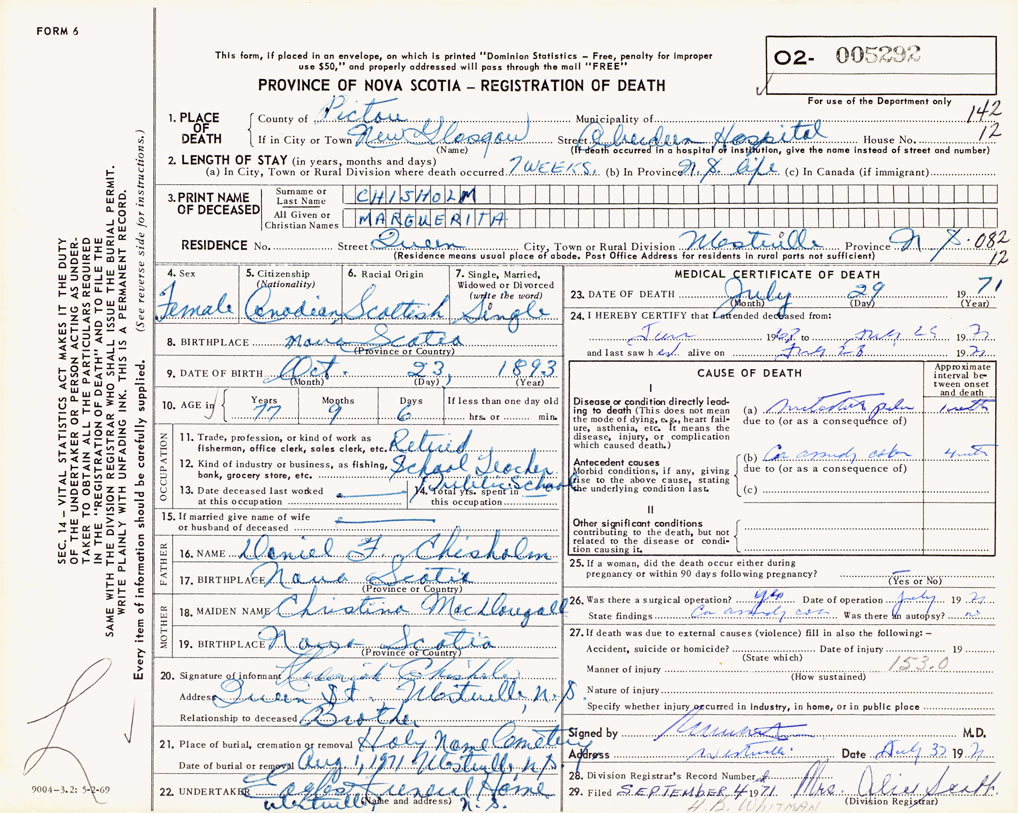 FORM 6
This form, if placed in an envelope, on which is printed "Dominion Statistics – Free, penalty for improper
use $50," and properly addressed will pass through the mail "FREE"
02- 005292
PROVINCE OF NOVA SCOTIA – REGISTRATION OF DEATH
For use of the Department only
1. PLACE OF DEATH
County of Pictou Municipality of 142
If in City or Town New Glasgow Street Aberdeen Hospital House No. 12
(Name) (If death occurred in a hospital or institution, give the name instead of street and number)
2. LENGTH OF STAY (in years, months and days)
(a) In City, Town or Rural Division where death occurred 7 WEEKS. (b) In Province N.S. life (c) In Canada (if immigrant)
3. PRINT NAME OF DECEASED
Surname or Last Name CHISHOLM
All Given or Christian Names MARGUERITA
RESIDENCE No. Street Queen City, Town or Rural Division Westville Province N.S. 082
(Residence means usual place of abode. Post Office Address for residents in rural parts not sufficient) 12
4. Sex Female
5. Citizenship (Nationality) Canadian
6. Racial Origin Scottish
7. Single, Married, Widowed or Divorced (write the word) Single
8. BIRTHPLACE Nova Scotia
(Province or Country)
9. DATE OF BIRTH Oct. 23, 1893
(Month) (Day) (Year)
10. AGE in Years 77 Months 9 Days 6 If less than one day old hrs. or min.
OCCUPATION
11. Trade, profession, or kind of work as fisherman, office clerk, sales clerk, etc. Retired
12. Kind of industry or business, as fishing, bank, grocery store, etc. School Teacher
Public School
13. Date deceased last worked at this occupation
14. Total yrs. spent in this occupation
15. If married give name of wife or husband of deceased
FATHER
16. NAME Daniel F. Chisholm
17. BIRTHPLACE Nova Scotia
(Province or Country)
MOTHER
18. MAIDEN NAME Christina MacDougall
19. BIRTHPLACE Nova Scotia
(Province or Country)
20. Signature of informant Chisholm
Address Queen St. Westville, N.S.
Relationship to deceased Brother
21. Place of burial, cremation or removal Holy Name Cemetery
Date of burial or removal Aug 1, 1971 Westville, N.S.
22. UNDERTAKER Funeral Home
Westville, N.S.
(Name and address)
MEDICAL CERTIFICATE OF DEATH
23. DATE OF DEATH July 29 1971
(Month) (Day) (Year)
24. I HEREBY CERTIFY that I attended deceased from:
June 19 to July 29 1971
and last saw her alive on July 28 1971
CAUSE OF DEATH
Approximate interval between onset and death
I
Disease or condition directly leading to death (This does not mean the mode of dying, e.g., heart failure, asthenia, etc. It means the disease, injury, or complication which caused death.)
(a)
due to (or as a consequence of)
Antecedent causes
Morbid conditions, if any, giving rise to the above cause, stating the underlying condition last.
(b)
due to (or as a consequence of)
(c)
II
Other significant conditions contributing to the death, but not related to the disease or condition causing it.
25. If a woman, did the death occur either during pregnancy or within 90 days following pregnancy?
(Yes or No)
26. Was there a surgical operation? yes Date of operation July 1971
State findings Was there an autopsy? no
27. If death was due to external causes (violence) fill in also the following: –
Accident, suicide or homicide? Date of injury 19
(State which)
Manner of injury 153.0
(How sustained)
Nature of injury
Specify whether injury occurred in industry, in home, or in public place
Signed by M.D.
Address Westville Date July 1971
28. Division Registrar's Record Number
29. Filed SEPTEMBER 4 1971 Mrs. Alice Scott
(Division Registrar)
H.B. WHITMAN
SEC. 14 – VITAL STATISTICS ACT MAKES IT THE DUTY
OF THE UNDERTAKER OR PERSON ACTING AS UNDER-
TAKER TO OBTAIN ALL THE PARTICULARS REQUIRED
IN THE "REGISTRATION OF DEATH" AND TO FILE THE
SAME WITH THE DIVISION REGISTRAR WHO SHALL ISSUE THE BURIAL PERMIT.
WRITE PLAINLY WITH UNFADING INK. THIS IS A PERMANENT RECORD.
Every item of information should be carefully supplied. (See reverse side for instructions.)
9004-3.2: 5-2-69